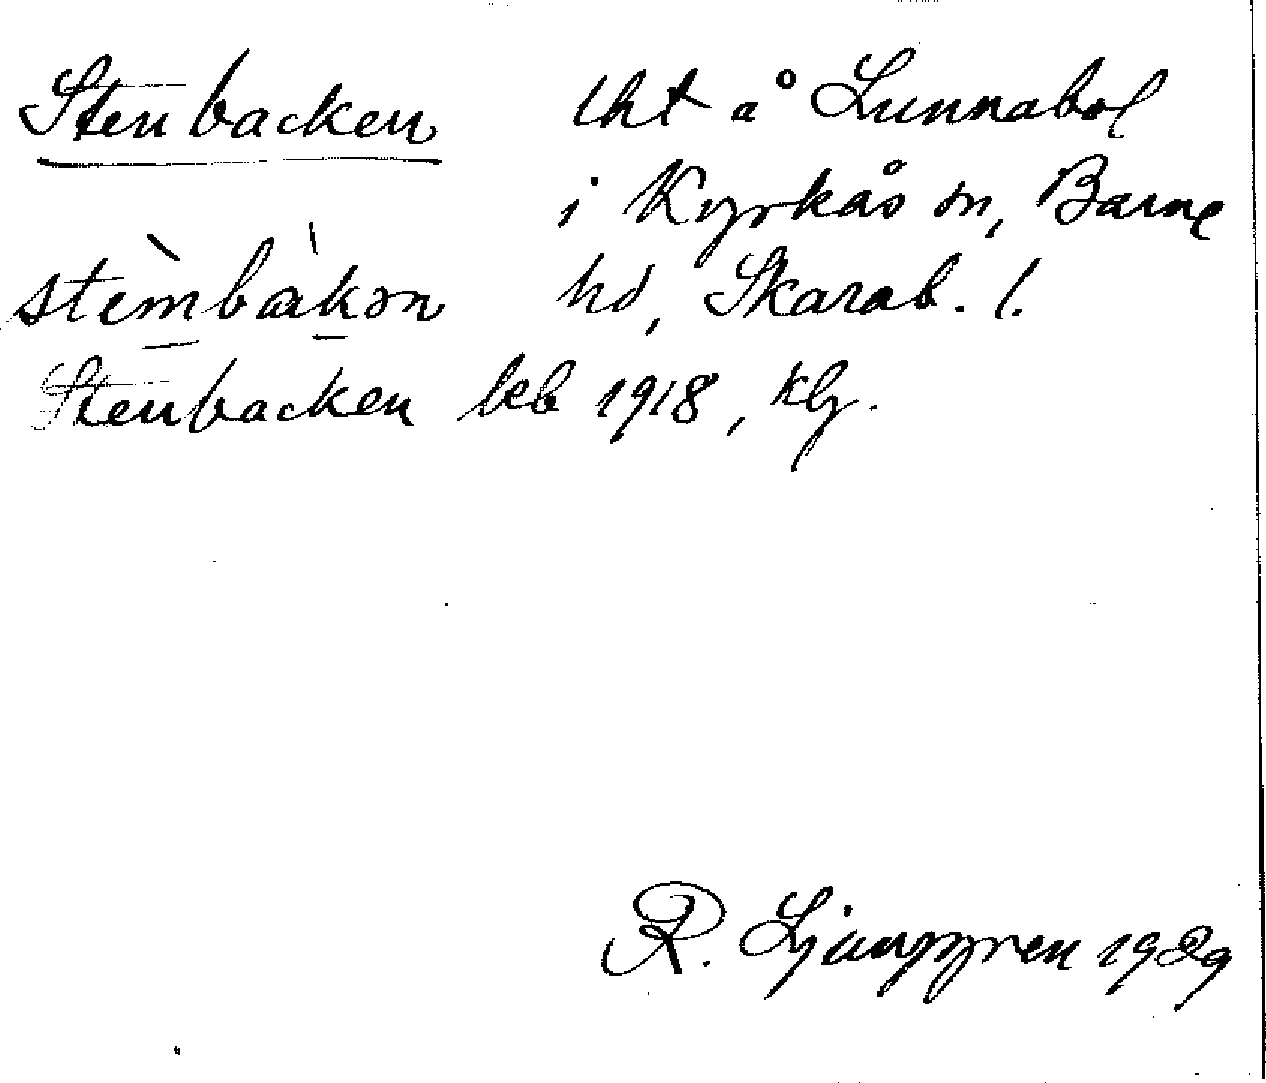 Stenbacken lht å Lunnabol
i Kyrkås sn, Barne
stèmbàkən hd, Skarab. l.
Stenbacken leb 1918, klg.
R. Ljunggren 1929